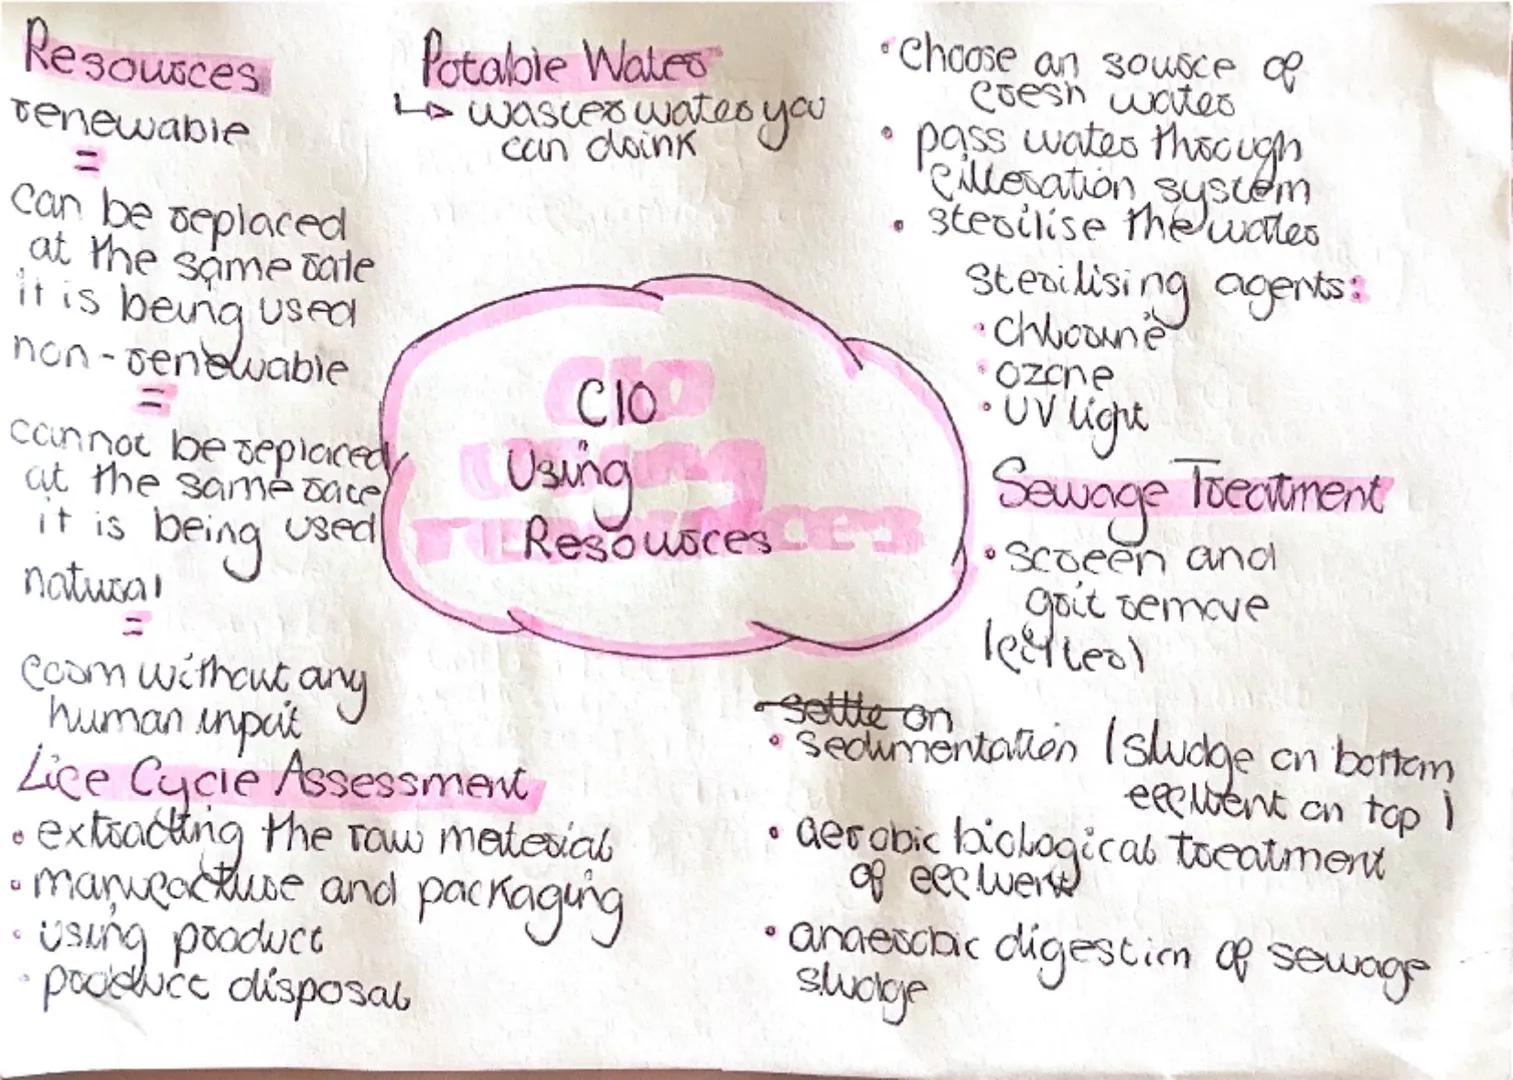 Resources
renewable
=
can be replaced
at the same rate
it is being used
non-renewable
=
cannot be replaced
at the same rate
it is being used
natural
=
form without any
human input
Life Cycle Assessment
• extracting the raw material
• manufacture and packaging
• using product
• product disposal
Potable Water
↳ water you
can drink
C10
Using
Resources
• Choose an source of
fresh water
• pass water through
filteration system
• sterilise the water
Sterilising agents:
• Chlorine
• ozone
• UV light
Sewage Treatment
• screen and
grit remove
(filter)
• settle on
• sedimentation (sludge on bottom
effluent on top)
• aerobic biological treatment
of effluent
• anaerobic digestion of sewage
sludge